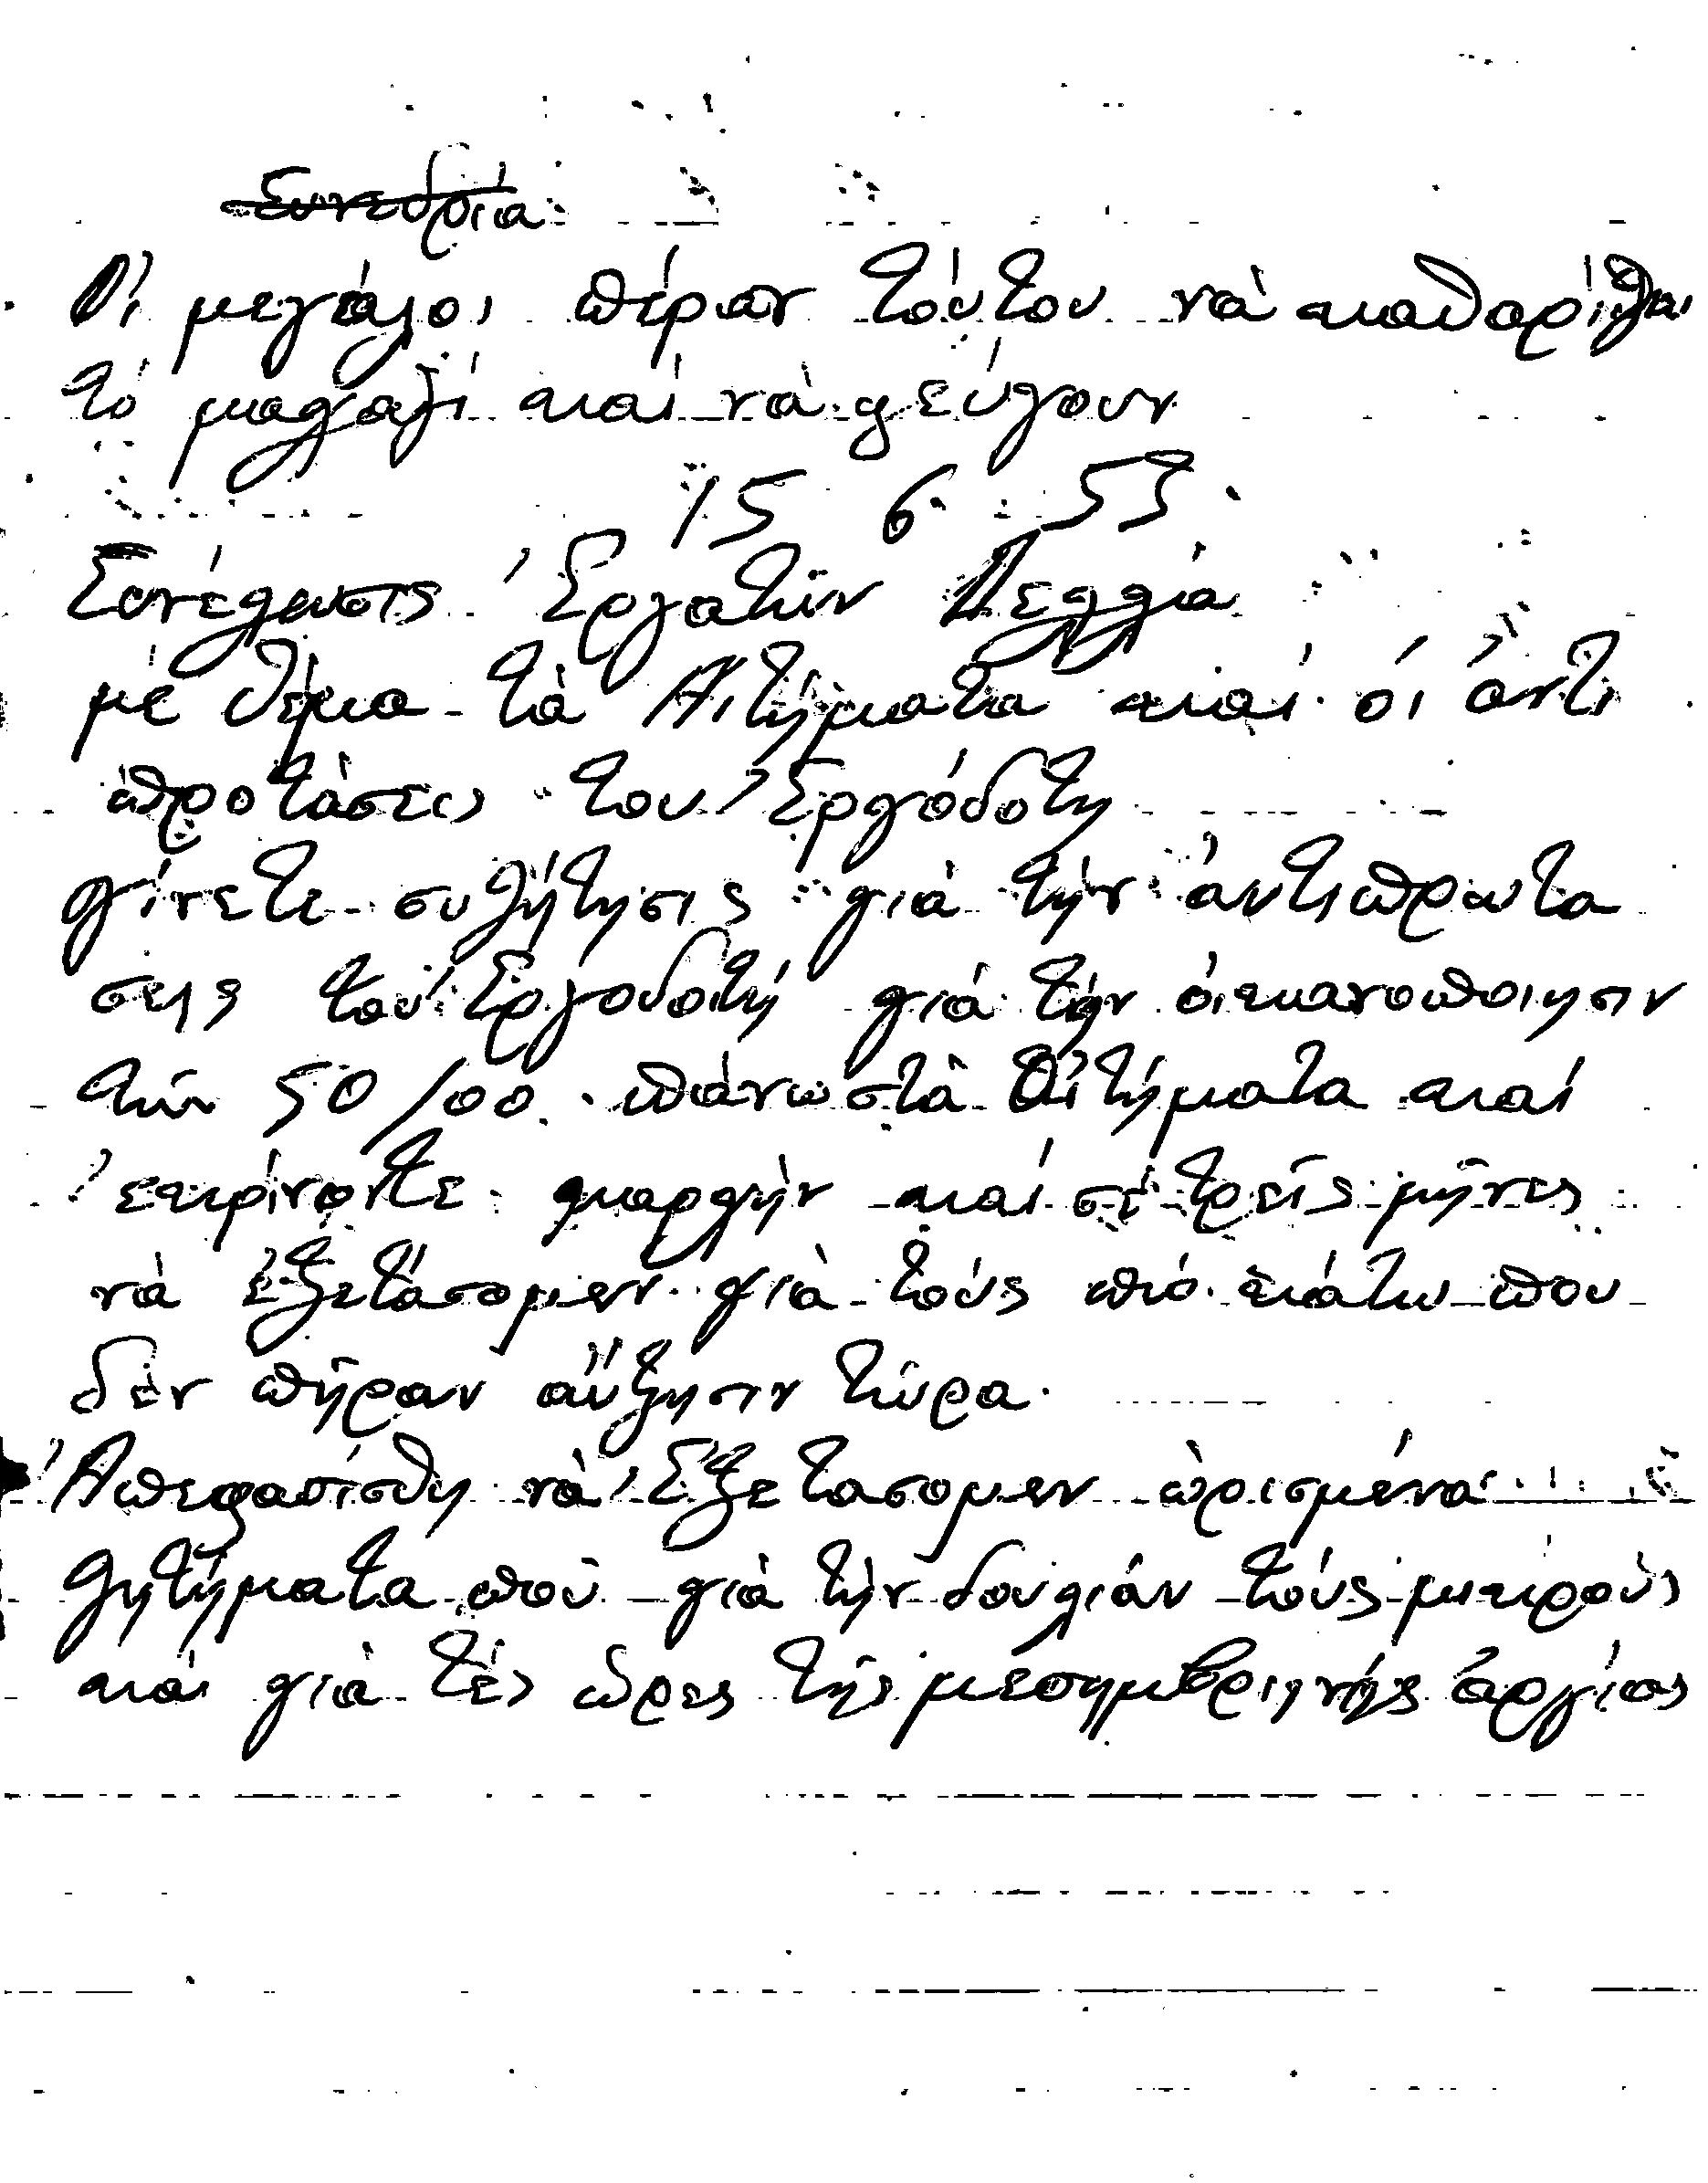 Συνεδρία
Οἱ μεγάλοι πέραν τούτου νὰ
τό μαγαζί καί νὰ φεύγουν
15 6 55.
Συνέλευσις Ἐργατῶν Πελλιά
μὲ θέμα τὰ Αἰτήματα καί οἱ ἀντι
προτάσεις του Ἐργόδοτη
γίνετε συζήτησις γιὰ τὴν ἀντιπρωτα
σης του Ἐργοδοτή γιά τήν οἱκανοποιησιν
τῶν 50/00 πάνω στὰ Αἰτήματα καί
ἐκρίνοτε καί σὲ τρεῖς μῆνες
νὰ ἐξετάσομεν γιὰ τούς πιό κάτω που
δὲν πῆραν αὔξησιν τώρα.
Ἀπεφασίσθη νὰ Ἐξετασομεν ὡρισμένα
ζητήματα ποῦ γιὰ τὴν δουλιάν τούς μικρούς
καί γιὰ τὲς ὧρες τῆς μεσημβρινής ἀργίας